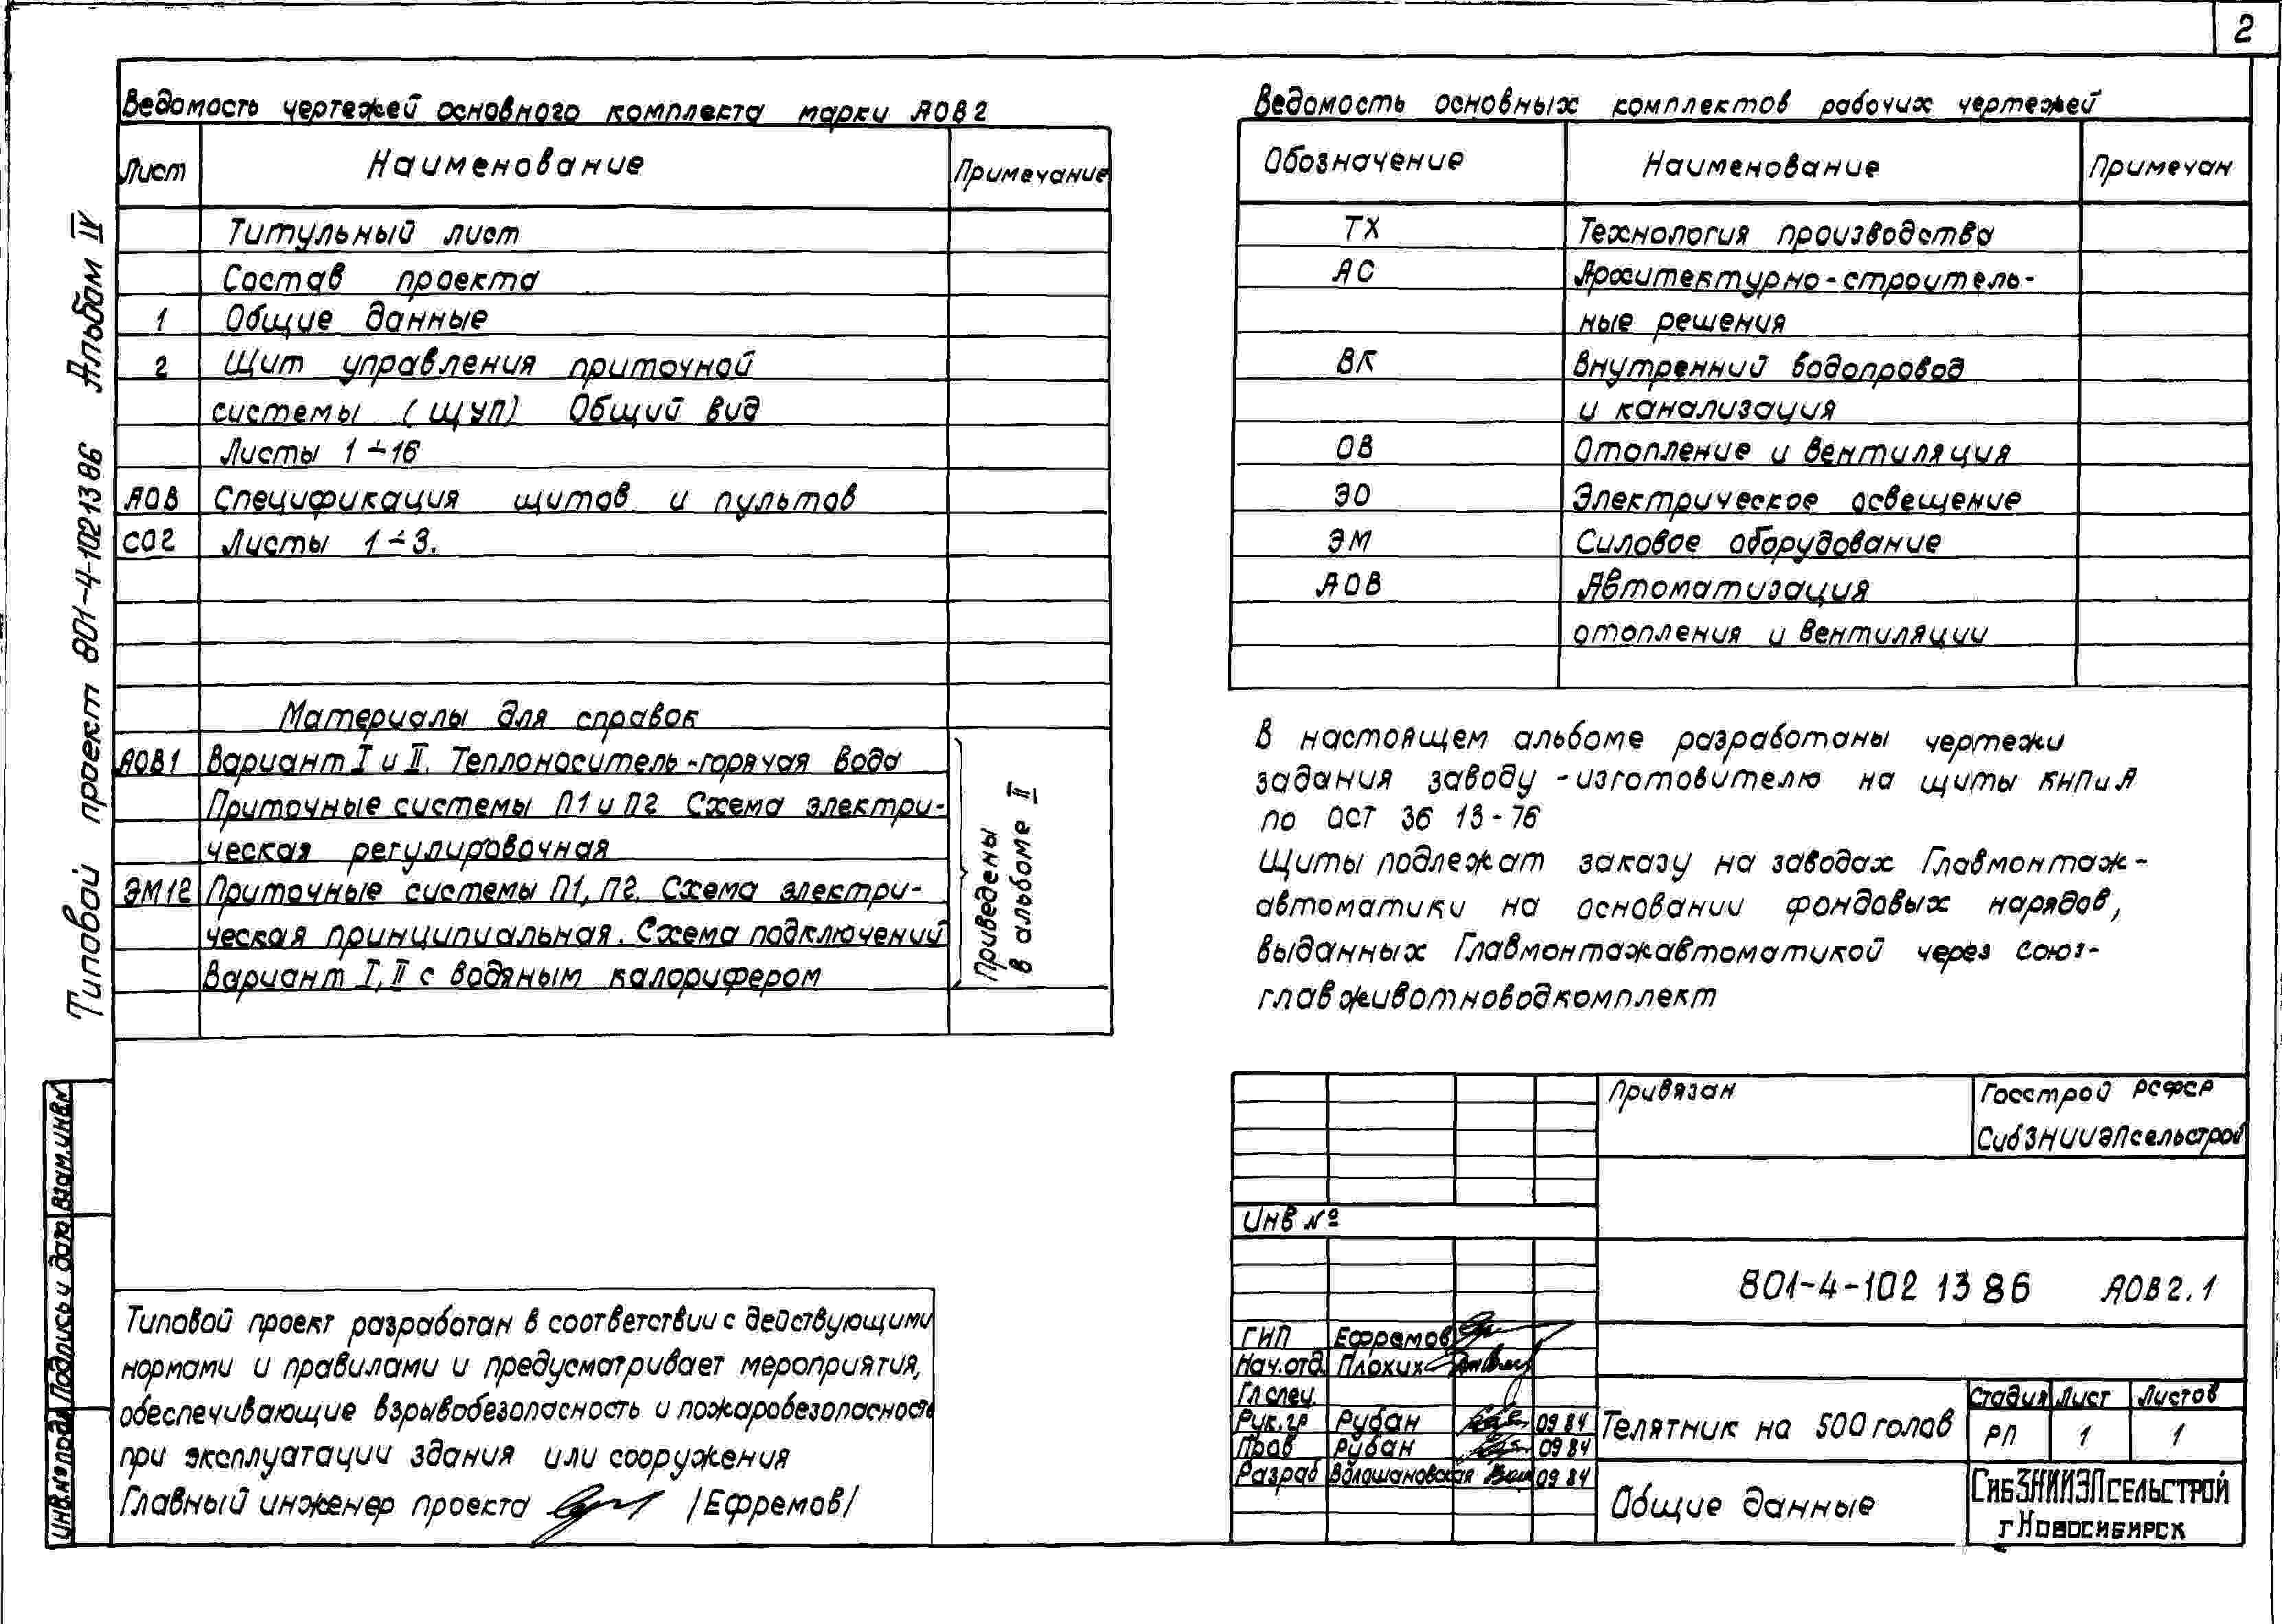 2
Типовой проект 801-4-102 13 86 Альбом IV
Ведомость чертежей основного комплекта марки АОВ2
Лист Наименование Примечание
Титульный лист
Состав проекта
1 Общие данные
2 Щит управления приточной
системы (ЩУП) Общий вид
Листы 1÷16
АОВ Спецификация щитов и пультов
СО2 Листы 1÷3.
Материалы для справок
АОВ1 Вариант I и II. Теплоноситель-горячая вода
Приточные системы П1 и П2 Схема электри-
ческая регулировочная
ЭМ12 Приточные системы П1, П2. Схема электри-
ческая принципиальная. Схема подключений
Вариант I, II с водяным калорифером
Приведены
в альбоме II
Ведомость основных комплектов рабочих чертежей
Обозначение Наименование Примечан
ТХ Технология производства
АС Архитектурно-строитель-
ные решения
ВК Внутренний водопровод
и канализация
ОВ Отопление и вентиляция
ЭО Электрическое освещение
ЭМ Силовое оборудование
АОВ Автоматизация
отопления и вентиляции
В настоящем альбоме разработаны чертежи
задания заводу-изготовителю на щиты КНПиА
по ОСТ 36 13-76
Щиты подлежат заказу на заводах Главмонтаж-
автоматики на основании фондовых нарядов,
выданных Главмонтажавтоматикой через союз-
главживотноводкомплект
Типовой проект разработан в соответствии с действующими
нормами и правилами и предусматривает мероприятия,
обеспечивающие взрывобезопасность и пожаробезопасность
при эксплуатации здания или сооружения
Главный инженер проекта /Ефремов/
Инв.№подл Подпись и дата Взам.инв№
Привязан
Госстрой РСФСР
СибЗНИИЭПсельстрой
Инв №
801-4-102 13 86 АОВ2.1
ГИП Ефремов
Нач.отд. Плохих
Гл спец.
Рук.гр Рубан 09 84
Пров Рубан 09 84
Разраб Волошановская 09 84
Телятник на 500 голов
Стадия Лист Листов
РП 1 1
Общие данные
СибЗНИИЭПсельстрой
г Новосибирск